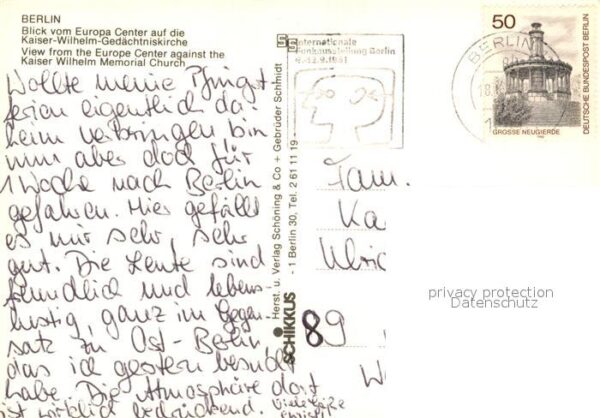 BERLIN
Blick vom Europa Center auf die
Kaiser-Wilhelm-Gedächtniskirche
View from the Europe Center against the
Kaiser Wilhelm Memorial Church
Wollte meine Pfingst
ferien eigentlich da
heim verbringen bin
nun aber doch für
1 Woche nach Berlin
gefahren. Hier gefällt
es mir sehr, sehr
gut. Die Leute sind
freundlich und lebens-
lustig, ganz im Gegen-
satz zu Ost-Berlin
das ich gestern besucht
habe. Die Atmosphäre dort
ist wirklich bedrückend.
Viele Grüße
SCHIKKUS
Herst. u. Verlag Schöning & Co + Gebrüder Schmidt
- 1 Berlin 30, Tel. 2 61 11 19 -
Internationale
Funkausstellung Berlin
4.-13.9.1981
BERLIN
50
DEUTSCHE BUNDESPOST BERLIN
GROSSE NEUGIERDE
Fam.
Ka
Ulric
89
W
privacy protection
Datenschutz